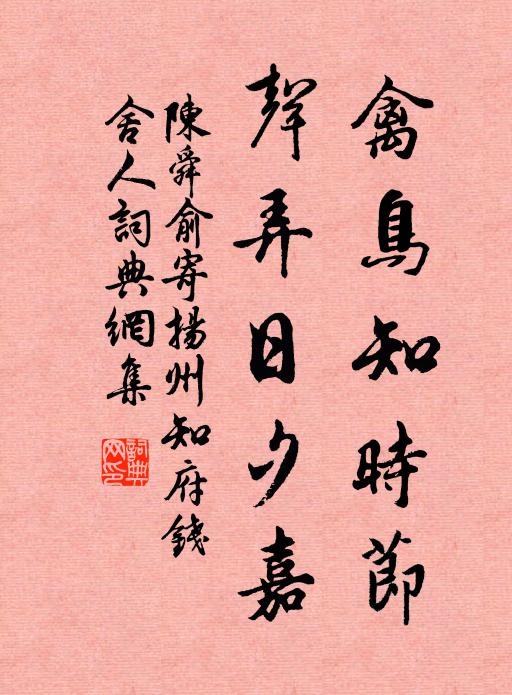 禽鳥知時節
聲弄日夕嘉
陳舜俞寄揚州知府錢
舍人詞典網集
詞典網印